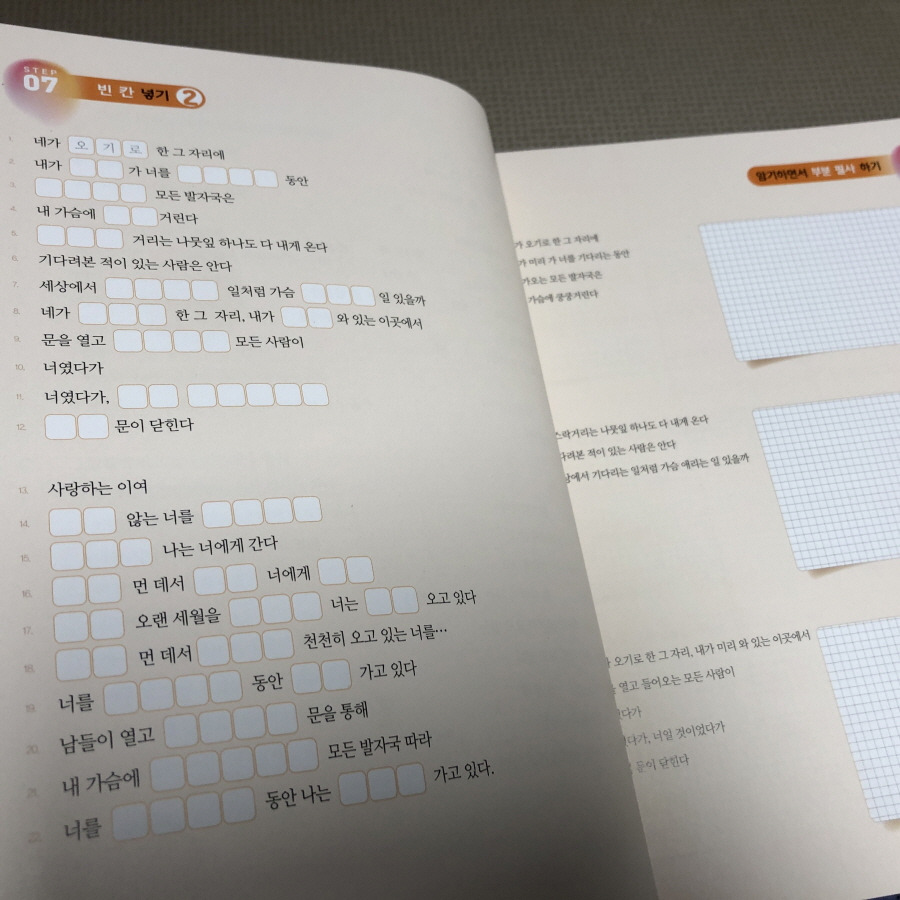 STEP
07
빈 칸 넣기 2
1. 네가 오기로 한 그 자리에
2. 내가 가 너를 동안
3. 모든 발자국은
4. 내 가슴에 거린다
5. 거리는 나뭇잎 하나도 다 내게 온다
6. 기다려본 적이 있는 사람은 안다
7. 세상에서 일처럼 가슴 일 있을까
8. 네가 한 그 자리, 내가 와 있는 이곳에서
9. 문을 열고 모든 사람이
10. 너였다가
11. 너였다가,
12. 문이 닫힌다
13. 사랑하는 이여
14. 않는 너를
15. 나는 너에게 간다
16. 먼 데서 너에게
17. 오랜 세월을 너는 오고 있다
18. 먼 데서 천천히 오고 있는 너를…
19. 너를 동안 가고 있다
20. 남들이 열고 문을 통해
21. 내 가슴에 모든 발자국 따라
22. 너를 동안 나는 가고 있다.
암기하면서 부분 필사 하기
가 오기로 한 그 자리에
가 미리 가 너를 기다리는 동안
가오는 모든 발자국은
가슴에 쿵쿵거린다
스락거리는 나뭇잎 하나도 다 내게 온다
다려본 적이 있는 사람은 안다
상에서 기다리는 일처럼 가슴 애리는 일 있을까
오기로 한 그 자리, 내가 미리 와 있는 이곳에서
열고 들어오는 모든 사람이
다가
다가, 너일 것이었다가
닫힌다